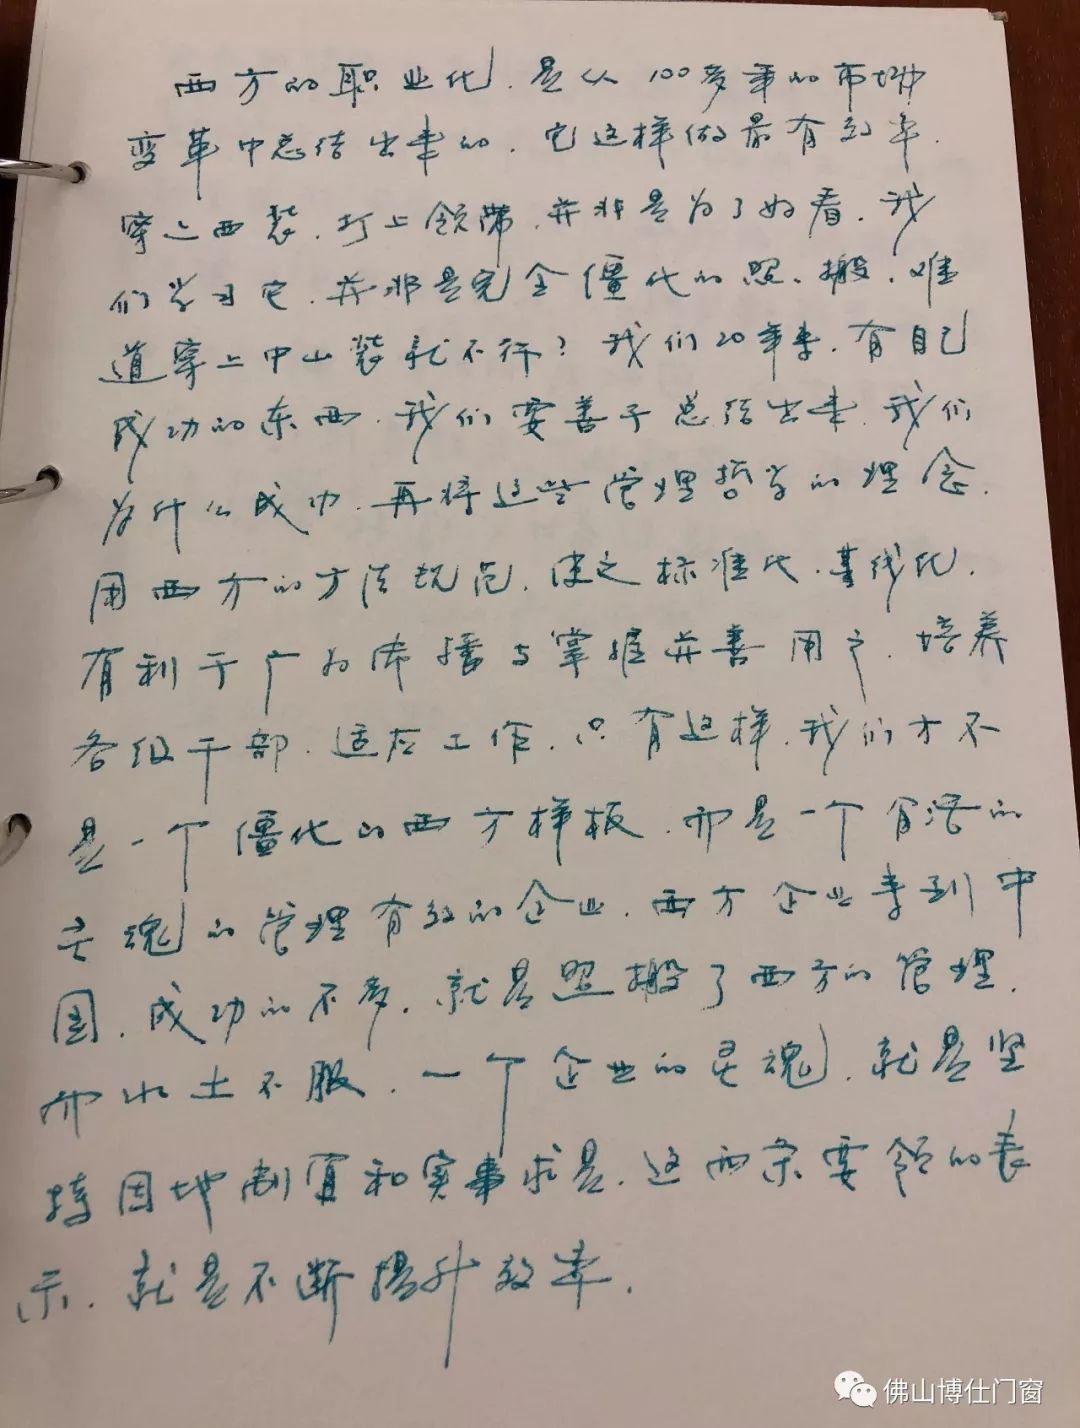 西方的职业化，是从100多年的市场
变革中总结出来的，它这样做最有效率。
穿上西装，打上领带，并非是为了好看。我
们学习它，并非是完全僵化的照搬，难
道穿上中山装就不行？我们20年来，有自己
成功的东西，我们要善于总结出来，我们
为什么成功，再将这些管理哲学的理念，
用西方的方法规范，使之标准化、基线化，
有利于广为传播与掌握并善用之，培养
各级干部，适应工作。只有这样，我们才不
是一个僵化的西方样板，而是一个有活的
灵魂的管理有效的企业。西方企业来到中
国，成功的不多，就是照搬了西方的管理，
而水土不服。一个企业的灵魂，就是坚
持因地制宜和实事求是。这两条要领的表
示，就是不断提升效率。
佛山博仕门窗